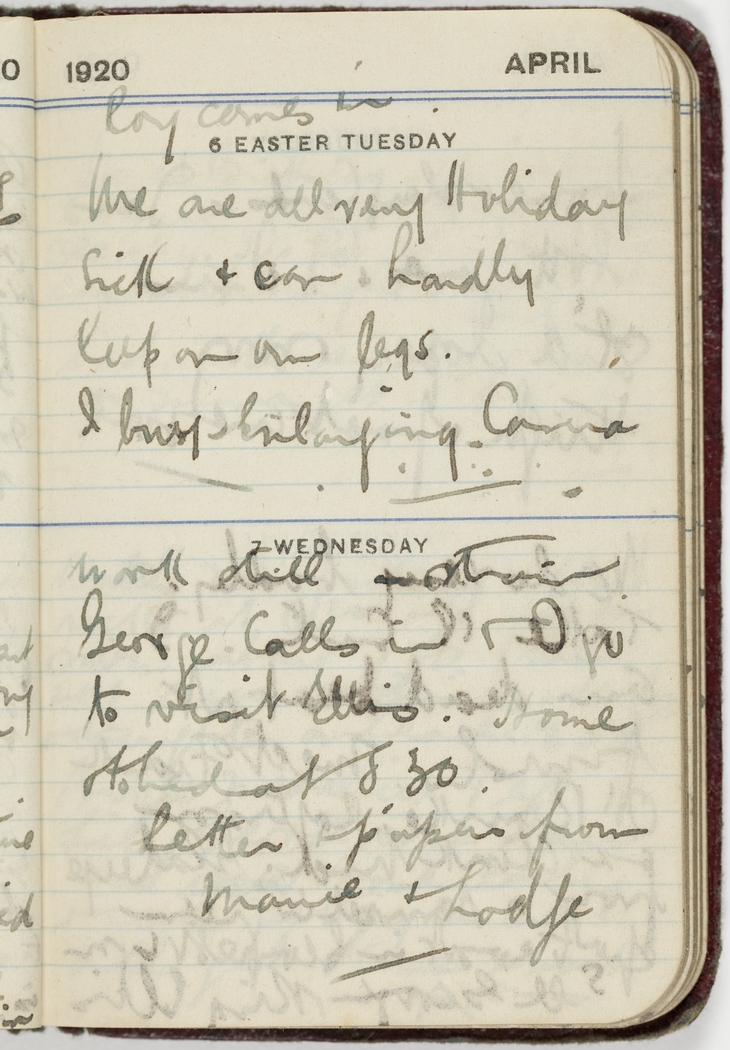 1920 APRIL
Roy comes in.
6 EASTER TUESDAY
We are all very Holiday
Sick + can hardly
keep on our legs.
I busy enlarging. Camera
7 WEDNESDAY
work still a strain
George Calls in + I go
to visit Ellis. Home
& to bed at 8 30.
Letter + papers from
Mamie + Lodge